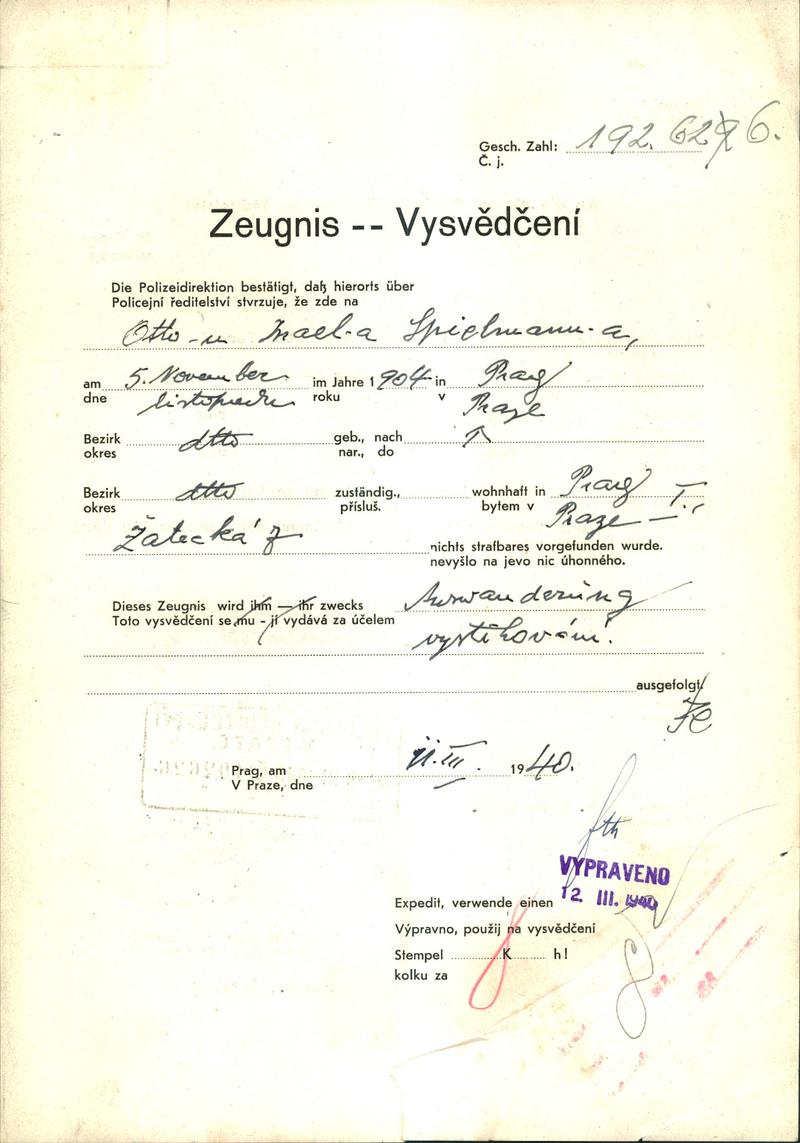 Gesch. Zahl: 192.6296.
Č. j.
Zeugnis -- Vysvědčení
Die Polizeidirektion bestätigt, daß hierorts über
Policejní ředitelství stvrzuje, že zde na
Otto-u Israel-a Spielmann-a,
am 5. November im Jahre 1904 in Prag
dne listopadu roku v Praze
Bezirk dtto geb., nach
okres nar., do
Bezirk dtto zuständig., wohnhaft in Prag I.
okres přísluš. bytem v Praze – I.,
Žatecká 7
nichts strafbares vorgefunden wurde.
nevyšlo na jevo nic úhonného.
Dieses Zeugnis wird ihm — ihr zwecks Auswanderung
Toto vysvědčení se mu - jí vydává za účelem vystěhování.
ausgefolgt
Prag, am 11. III. 1940.
V Praze, dne
VYPRAVENO
12. III. 1940
Expedit, verwende einen
Výpravno, použij na vysvědčení
Stempel K h!
kolku za 8